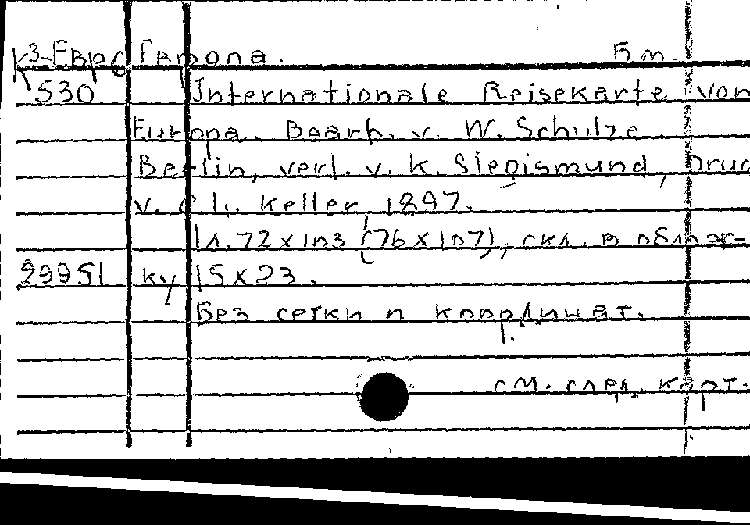 К3-Евро Европа. 5 м.
530 Internationale Reisekarte von
Europa. Bearb. v. W. Schulze.
Berlin, verl. v. K. Siegismund, Druc
v. C. L. Keller, 1897.
1л. 72x103 (76x107), скл. в облож-
29951 ку 15x23.
Без сетки и координат.
см. след. карт.